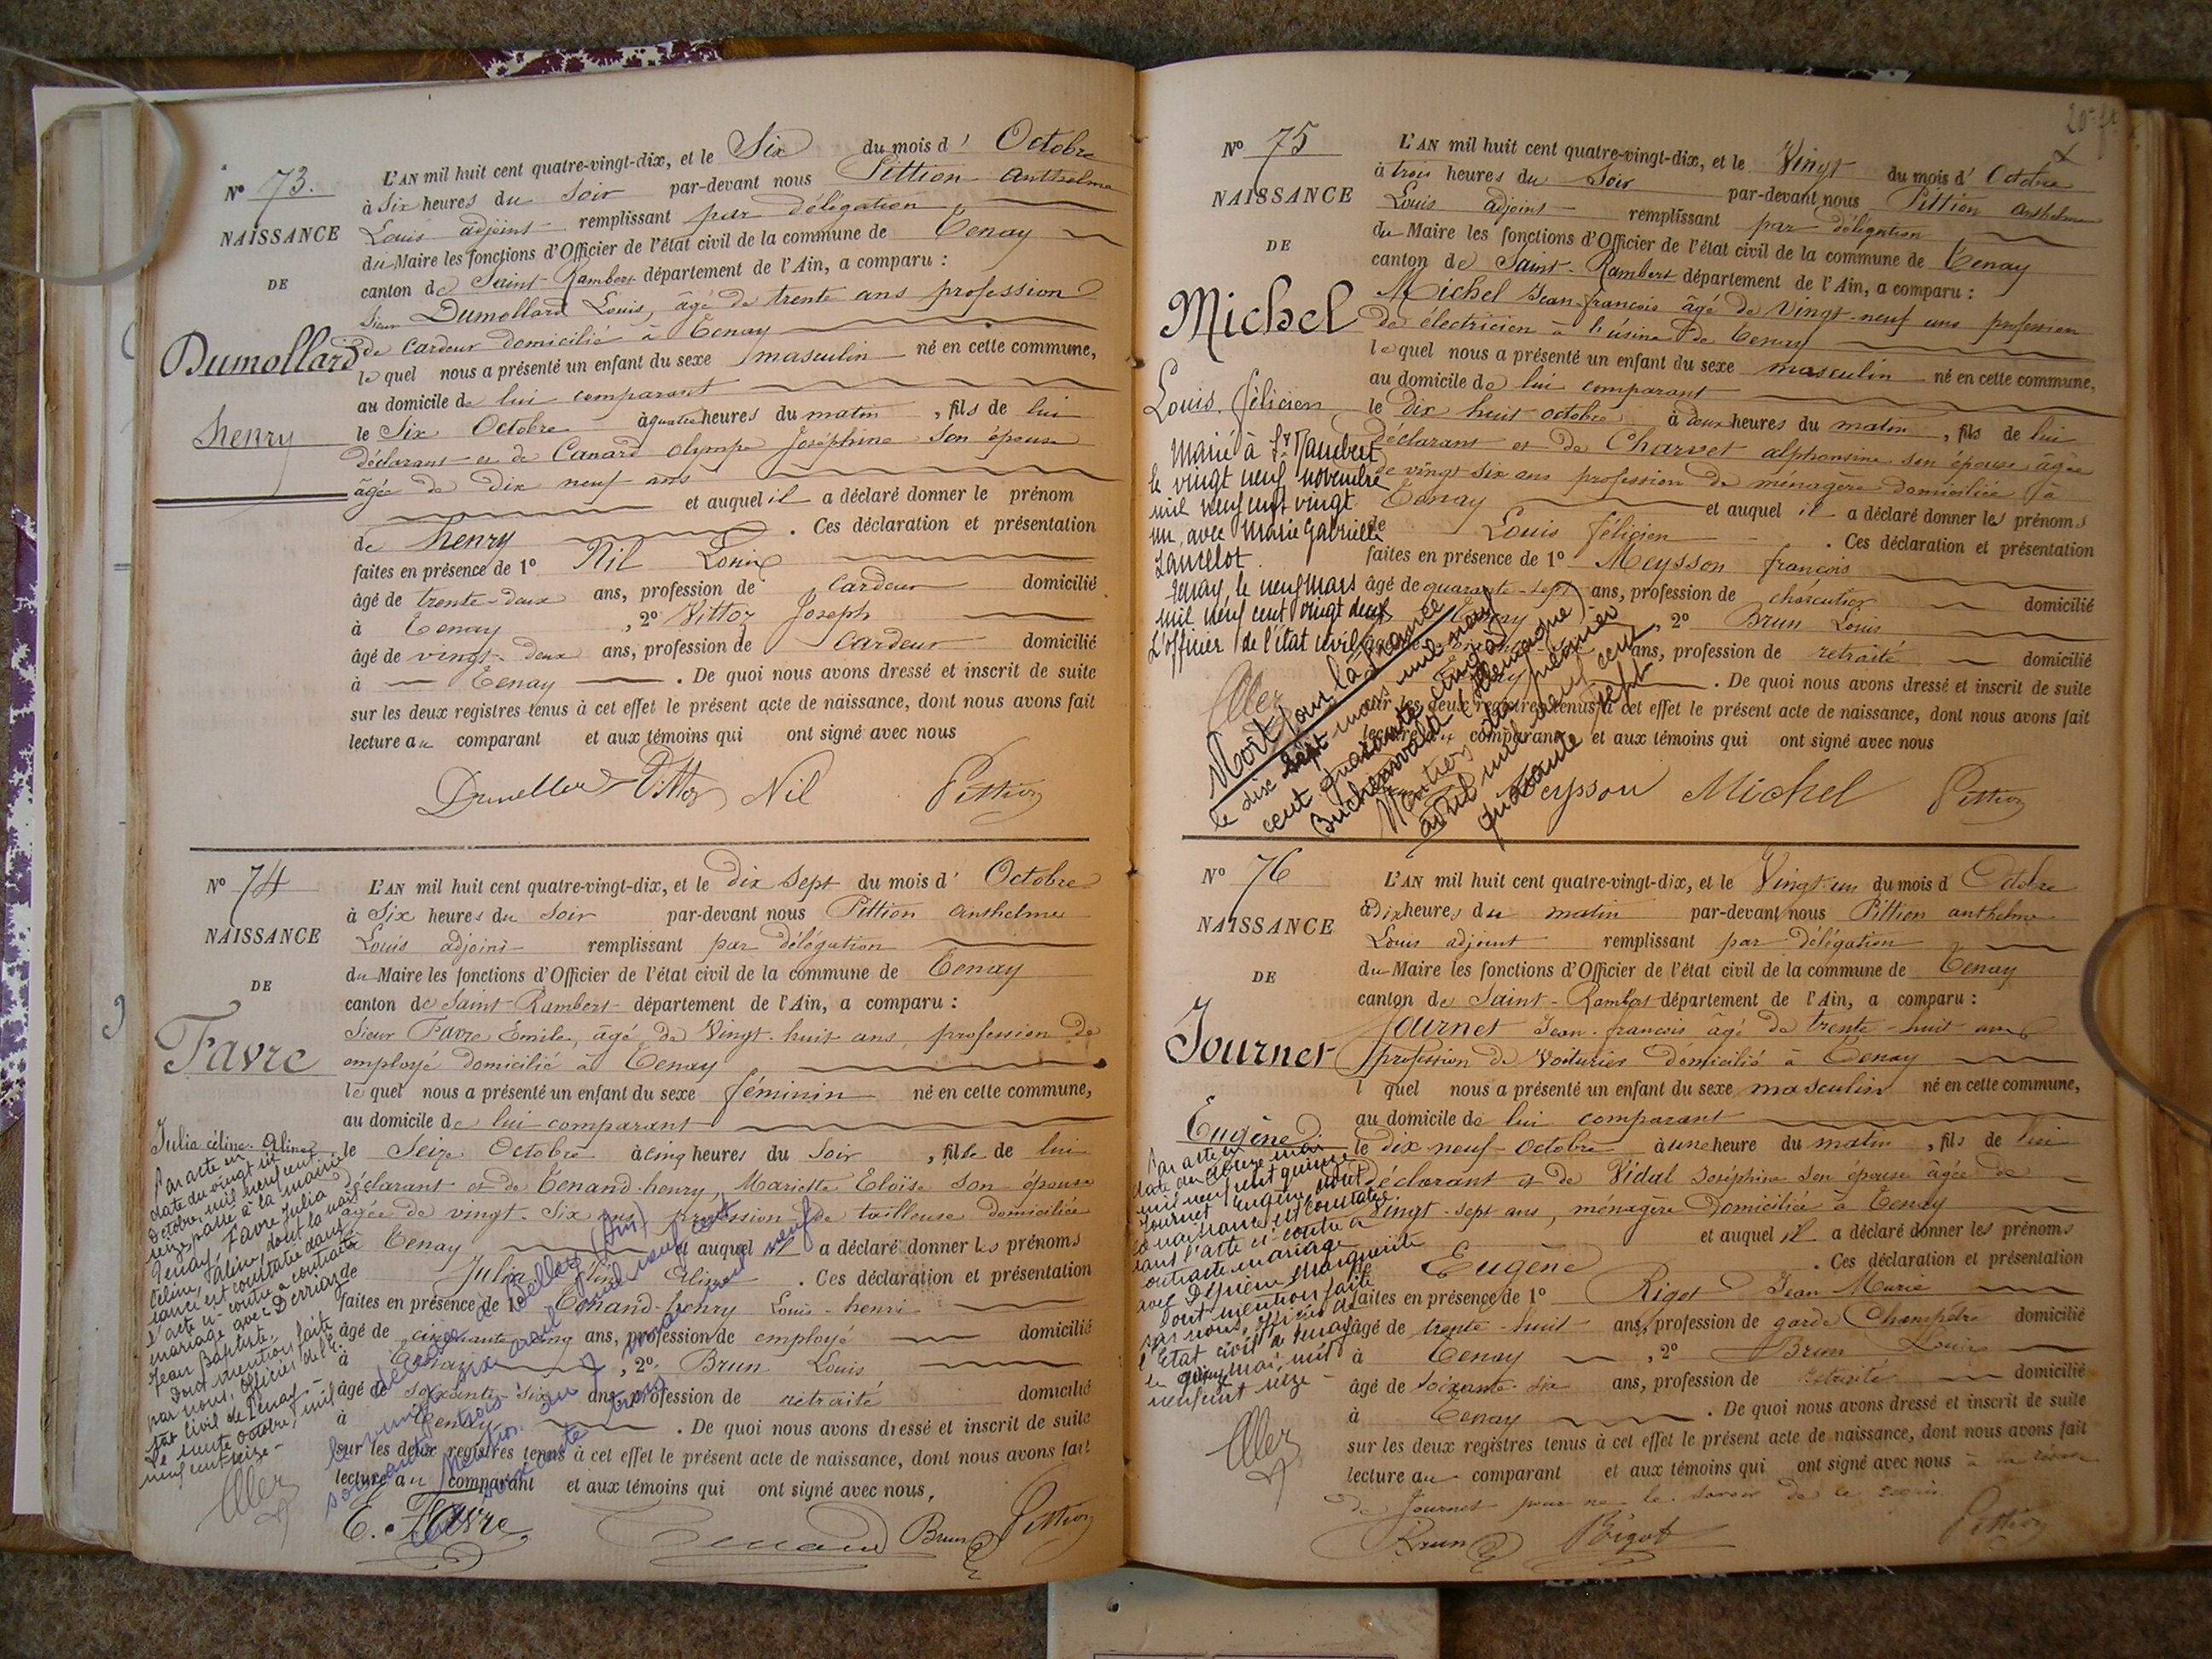 N° 73.
NAISSANCE
DE
Dumollard
henry
L'AN mil huit cent quatre-vingt-dix, et le Six du mois d' Octobre
à Six heures du Soir par-devant nous Pittion anthelme
Louis adjoint remplissant par délégation
du Maire les fonctions d'Officier de l'état civil de la commune de Tenay
canton de Saint-Rambert département de l'Ain, a comparu :
Sieur Dumollard Louis, âgé de trente ans profession
de cardeur domicilié à Tenay
lequel nous a présenté un enfant du sexe masculin né en cette commune,
au domicile de lui comparant
le Six Octobre à quatre heures du matin, fils de lui
déclarant et de Canard olympe Joséphine son épouse
âgée de dix neuf ans
et auquel il a déclaré donner le prénom
de henry. Ces déclaration et présentation
faites en présence de 1° Nil Louis
âgé de trente-deux ans, profession de cardeur domicilié
à Tenay, 2° Vittoz Joseph
âgé de vingt-deux ans, profession de cardeur domicilié
à Tenay. De quoi nous avons dressé et inscrit de suite
sur les deux registres tenus à cet effet le présent acte de naissance, dont nous avons fait
lecture au comparant et aux témoins qui ont signé avec nous
Vittoz Nil Pittion
N° 74
NAISSANCE
DE
Favre
Julia céline Aline
Par acte en
date du vingt un
Octobre mil neuf cent
seize passé à la mairie
Tenay, Favre Julia
Céline, Aline, dont la nais-
sance est constatée dans
l'acte ci-contre a contracté
mariage avec Derriaz
Jean Baptiste.
Dont mention faite
par nous, officier de l'E-
tat civil de Tenay
le trente octobre mil
neuf cent seize -
L'AN mil huit cent quatre-vingt-dix, et le dix Sept du mois d' Octobre
à Six heures du Soir par-devant nous Pittion anthelme
Louis adjoint remplissant par délégation
du Maire les fonctions d'Officier de l'état civil de la commune de Tenay
canton de Saint-Rambert département de l'Ain, a comparu :
Sieur Favre Emile, âgé de Vingt-huit ans, profession de
employé domicilié à Tenay
lequel nous a présenté un enfant du sexe féminin né en cette commune,
au domicile de lui comparant
le Seize Octobre à cinq heures du Soir, fille de lui
déclarant et de Tenand-henry, Mariette Eloïse son épouse
âgée de vingt-Six ans profession de tailleuse domiciliée
à Tenay et auquel il a déclaré donner les prénoms
Julia Céline Aline. Ces déclaration et présentation
faites en présence de 1° Tenand-henry Louis-henri
âgé de cinquante cinq ans, profession de employé domicilié
à Tenay, 2° Brun Louis
âgé de soixante-six ans, profession de retraité domicilié
à Tenay. De quoi nous avons dressé et inscrit de suite
sur les deux registres tenus à cet effet le présent acte de naissance, dont nous avons fait
lecture au comparant et aux témoins qui ont signé avec nous,
décédée à Belley (Ain)
le vingt six avril mil neuf cent
soixante trois
Mention du 7 mai mil neuf
cent soixante trois
E. Favre Tenand Brun Pittion
N° 75
NAISSANCE
DE
Michel
Louis, félicien
Marié à St Rambert
le vingt neuf novembre
mil neuf cent vingt
un, avec Marie Gabrielle
Lancelot.
Tenay, le neuf mars
mil neuf cent vingt deux
L'officier de l'état civil
L'AN mil huit cent quatre-vingt-dix, et le Vingt du mois d' Octobre
à trois heures du Soir par-devant nous Pittion anthelme
Louis adjoint remplissant par délégation
du Maire les fonctions d'Officier de l'état civil de la commune de Tenay
canton de Saint-Rambert département de l'Ain, a comparu :
Michel Jean-françois âgé de Vingt-neuf ans profession
de électricien à l'usine de Tenay
lequel nous a présenté un enfant du sexe masculin né en cette commune,
au domicile de lui comparant
le dix huit octobre à deux heures du matin, fils de lui
déclarant et de Charvet alphonsine son épouse âgée
de vingt six ans profession de ménagère domiciliée à
Tenay et auquel il a déclaré donner les prénoms
de Louis félicien. Ces déclaration et présentation
faites en présence de 1° Meysson françois
âgé de quarante-sept ans, profession de charcutier domicilié
à Tenay, 2° Brun Louis
ans, profession de retraité domicilié
Tenay. De quoi nous avons dressé et inscrit de suite
sur les deux registres tenus à cet effet le présent acte de naissance, dont nous avons fait
lecture au comparant et aux témoins qui ont signé avec nous
Mort pour la France
le dix sept mars mil neuf
cent quarante cinq à
Buchenwald (Allemagne)
Mention du premier
avril mil neuf cent
quarante sept
Meysson Michel Pittion
N° 76
NAISSANCE
DE
Journet
Eugène
Par acte en
date du douze mai
mil neuf cent quinze
Journet Eugène dont
la naissance est constatée
dans l'acte ci-contre a
contracté mariage
avec Marguerite
Dont mention faite
par nous, officier de
l'Etat civil de Tenay
le quinze mai, mil
neuf cent seize -
L'AN mil huit cent quatre-vingt-dix, et le Vingt-un du mois d Octobre
à dix heures du matin par-devant nous Pittion anthelme
Louis adjoint remplissant par délégation
du Maire les fonctions d'Officier de l'état civil de la commune de Tenay
canton de Saint-Rambert département de l'Ain, a comparu :
Journet Jean-françois âgé de trente-huit ans
profession de Voiturier domicilié à Tenay
l quel nous a présenté un enfant du sexe masculin né en cette commune,
au domicile de lui comparant
le dix neuf-Octobre à une heure du matin, fils de lui
déclarant et de Vidal Joséphine son épouse âgée de
Vingt-sept ans, ménagère domiciliée à Tenay
et auquel il a déclaré donner les prénoms
Eugène. Ces déclaration et présentation
faites en présence de 1° Rigot Jean Marie
âgé de trente-huit ans, profession de garde Champêtre domicilié
à Tenay, 2° Brun Louis
âgé de soixante-six ans, profession de retraité domicilié
à Tenay. De quoi nous avons dressé et inscrit de suite
sur les deux registres tenus à cet effet le présent acte de naissance, dont nous avons fait
lecture au comparant et aux témoins qui ont signé avec nous
de Journet pour ne le savoir de ce
Brun Rigot Pittion